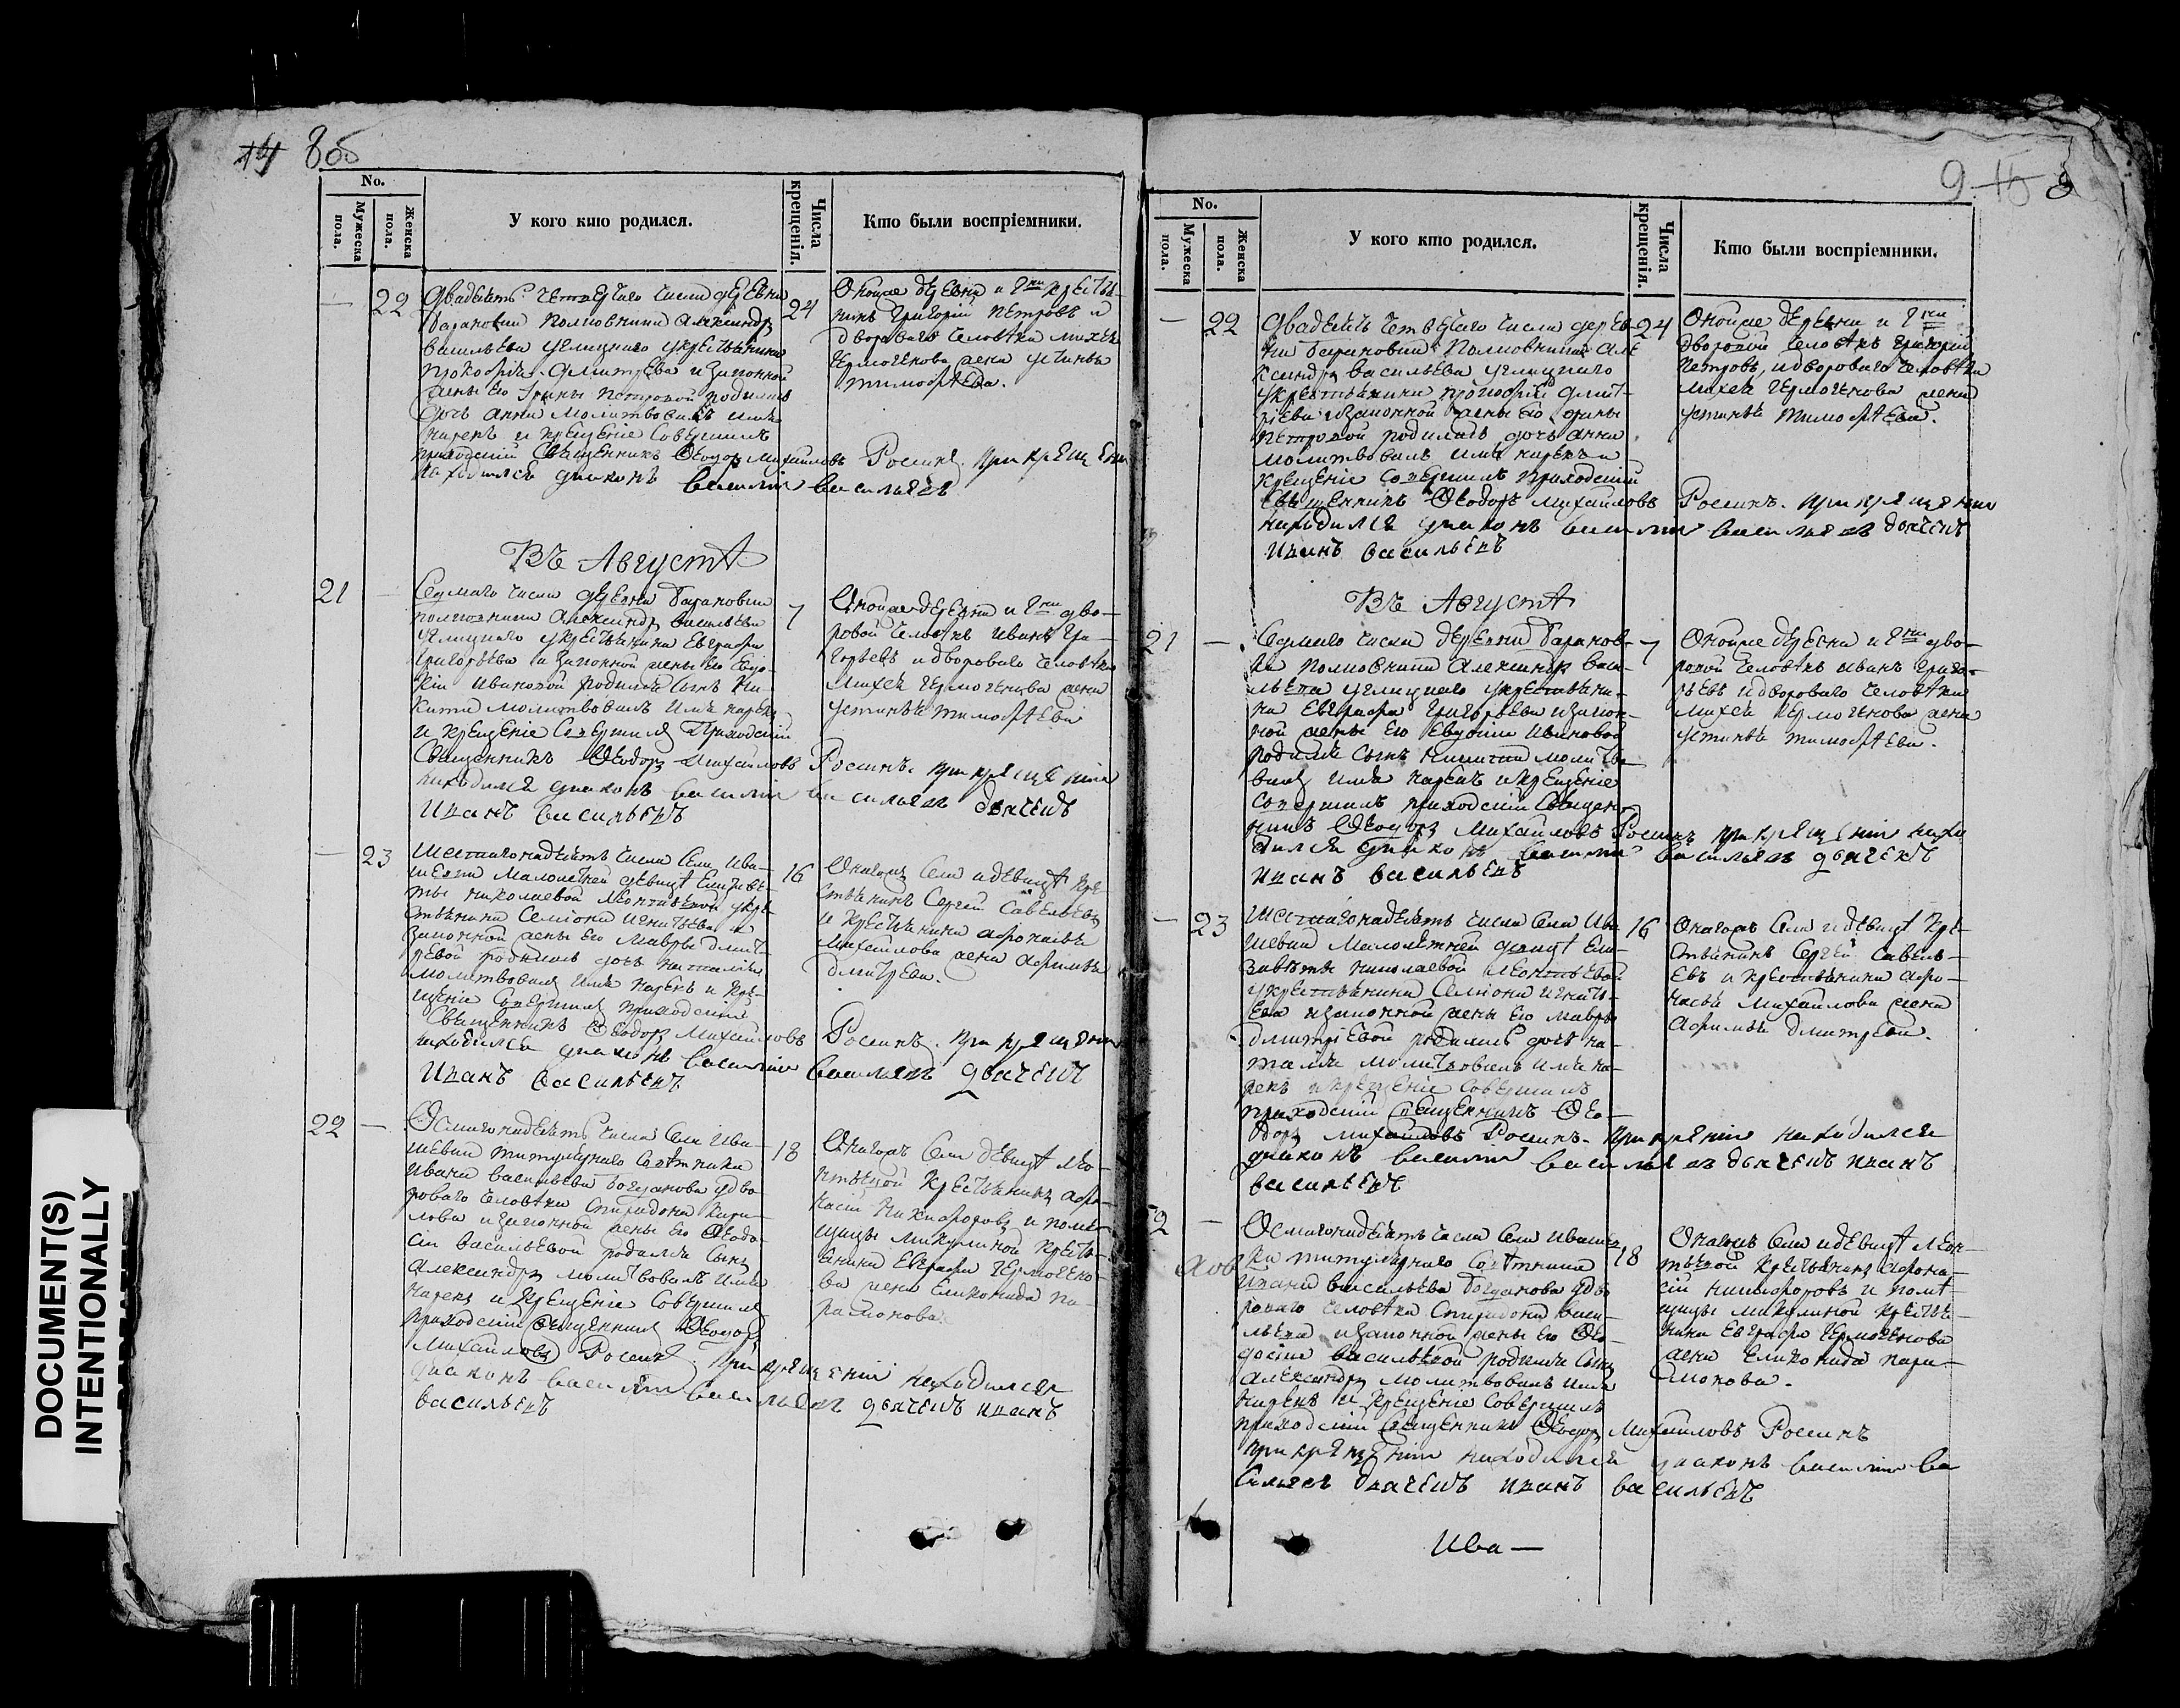 14 8об
No.
Мужеска пола.
Женска пола.
У кого кто родился.
Числа крещенія.
Кто были воспріемники.
22
Двадцеть четвертаго числа деревни
24
полковника Александр
Васильева
Прокофія Дмитрева и законной
жены его Ирины Петровой родилась
дочь Анна молитвовалъ имя
нарекъ и крещеніе совершилъ
приходскій священникъ Ѳеодоръ Михайловъ Росинъ. при крещеніи
находился диаконъ василии васильевъ
Оной же деревни и Гни крестья-
нинъ Григорій Петровъ и
двороваго человѣка Михея
Ермогенова жена Устинья
Тимофѣева.
Въ Августѣ
21
Седмаго числа деревни
7
полковника Александр Васильева
крестьянина Евграфа
Григорьева и законной жены его Евдо-
кіи Ивановой родился сынъ Ни-
кита молитвовалъ имя нарекъ
и крещеніе совершилъ Приходскій
Священникъ Ѳеодоръ Михайловъ Росинъ. при крещеніи
находился диаконъ василии васильевъ дьячекъ
Иванъ васильевъ
Оной же деревни и Гни дво-
ровой человѣкъ Иванъ Гри-
горьевъ и двороваго человѣка
Михея Ермогенова жена
Устинья Тимофѣева
23
Шестагонадцеть числа села Ива-
16
шевки малолетней девицы Елизаве-
ты Николаевой Леонтьевой у кре-
стьянина Семіона Игнатьева и
законной жены его Мавры Дмит-
ревой родилась дочь Наталья
молитвовалъ имя нарекъ и кре-
щеніе совершилъ приходскій
Священникъ Ѳеодоръ Михайловъ Росинъ. при крещеніи
находился диаконъ василии васильевъ дьячекъ
Иванъ васильевъ
Онагожъ села и девицы кре-
стьянинъ Сергей Савельевъ
и крестьянина Афонасья
Михайлова жена Афимья
Дмитрева.
22
Осмагонадцеть числа села Ива-
18
шевки титулярнаго совѣтника
Ивана Васильева Богданова у дво-
роваго человѣка Спиридона
и законной жены его Ѳеодо-
сіи Васильевой родился сынъ
Александръ молитвовалъ имя
нарекъ и крещеніе совершилъ
приходскій священникъ Ѳеодоръ
Михайловъ Росинъ. При крещеніи находился
диаконъ василии васильевъ дьячекъ иванъ
васильевъ
Онагожъ села девицы Лео-
нтьевой крестьянинъ Афо-
насій Никифоровъ и поме-
щицы Микулиной кресть-
янина Евграфа Ермогено-
ва жена Еликонида Па-
рамонова.
9 15 8
No.
Мужеска пола.
Женска пола.
У кого кто родился.
Числа крещенія.
Кто были воспріемники.
22
Двадцеть четвертаго числа дерев-
24
ни полковника Але
ксандр Васильева
крестьянина Прокофія Дмит-
ріева и законной жены его Ирины
Петровой родилась дочь Анна
молитвовалъ имя нарекъ и
крещеніе совершилъ приходскій
священникъ Ѳеодоръ Михайловъ Росинъ. при крещении
находился диаконъ василии васильевъ дьячекъ
Иванъ васильевъ
Оной же деревни и Гни
дворовой человѣкъ Григорій
Петровъ, и двороваго человѣка
Михея Ермогенова жена
Устинья Тимофѣева.
Въ Августѣ
21
Седмаго числа деревни
7
полковника Александр Васи-
льева крестьяни-
на Евграфа Григорьева и закон-
ной жены его Евдокіи Ивановой
родился сынъ Никита молитво-
валъ имя нарекъ и крещеніе
совершилъ приходскій священ-
никъ Ѳеодоръ Михайловъ Росинъ при крещеніи нахо
дился диаконъ василии васильевъ дьячекъ
Иванъ васильевъ
Оной же деревни и Гни дво-
ровой человѣкъ Иванъ Григо-
рьевъ и двороваго человѣка
Михея Ермогенова жена
Устинья Тимофѣева.
23
Шестагонадцеть числа села Ива-
16
шевки малолѣтней девицы Ели-
заветы Николаевой Леонтьевой
у крестьянина Семіона Игнать-
ева и законной жены его Мавры
Дмитріевой родилась дочь На-
талья молитвовалъ имя на-
рекъ и крещеніе совершилъ
приходскій священникъ Ѳео-
доръ Михайловъ Росинъ. При крѣніи находился
диаконъ василии васильевъ дьячекъ иванъ
васильевъ
Онагожъ села и девицы кре-
стьянинъ Сергей Савель-
евъ и крестьянина Афо-
насья Михайлова жена
Афимья Дмитрева.
22
Осмагонадцеть числа села Ивашев-
18
ки титулярнаго совѣтника
Ивана Васильева Богданова у дво-
роваго человѣка Спиридона Васи-
льева и законной жены его Ѳео-
досіи Васильевой родился сынъ
Александръ молитвовалъ имя
нарекъ и крещеніе совершилъ
приходскій священникъ Ѳеодоръ Михайловъ Росинъ
при крещеніи находился диаконъ василии ва
сильевъ дьячекъ иванъ васильевъ
Онагожъ села и девицы Леон-
тьевой крестьянинъ Афона-
сій Никифоровъ и помѣ-
щицы Микулиной крестья-
нина Евграфа Ермогенова
жена Еликонида Пара-
монова.
Ива-
DOCUMENT(S)
INTENTIONALLY